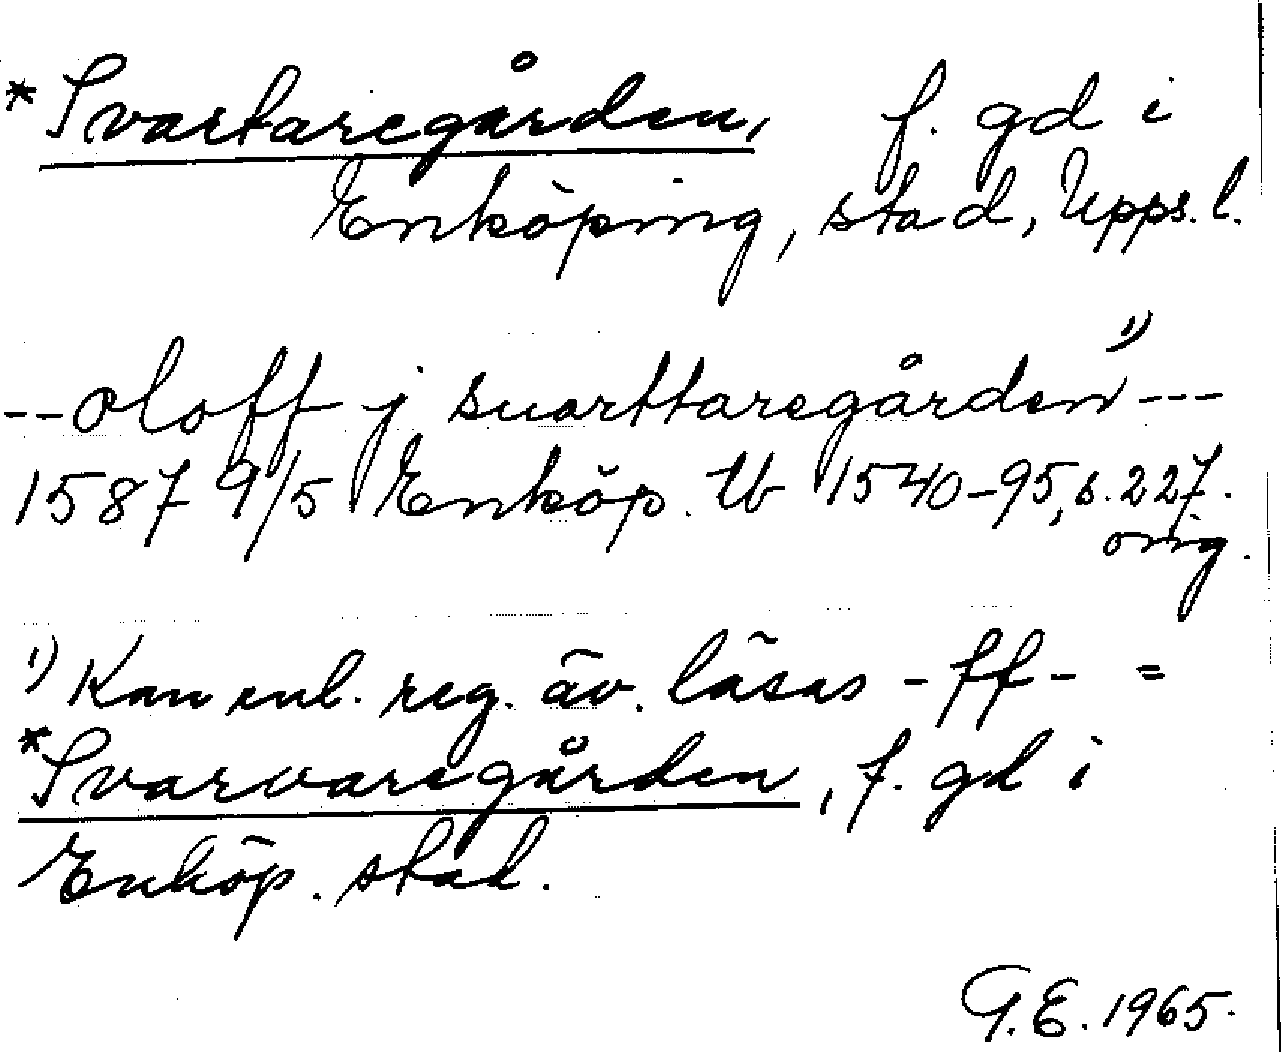 *Svartaregården, f. gd i
Enköping, stad, Upps. l.
--oloff j suarttaregården¹⁾---
1587 9/5 Enköp. tb 1540-95, s. 227.
orig.
¹⁾ Kan enl. reg. äv. läsas -ff- =
*Svarvaregården, f. gd i
Enköp. stad.
G.E. 1965.